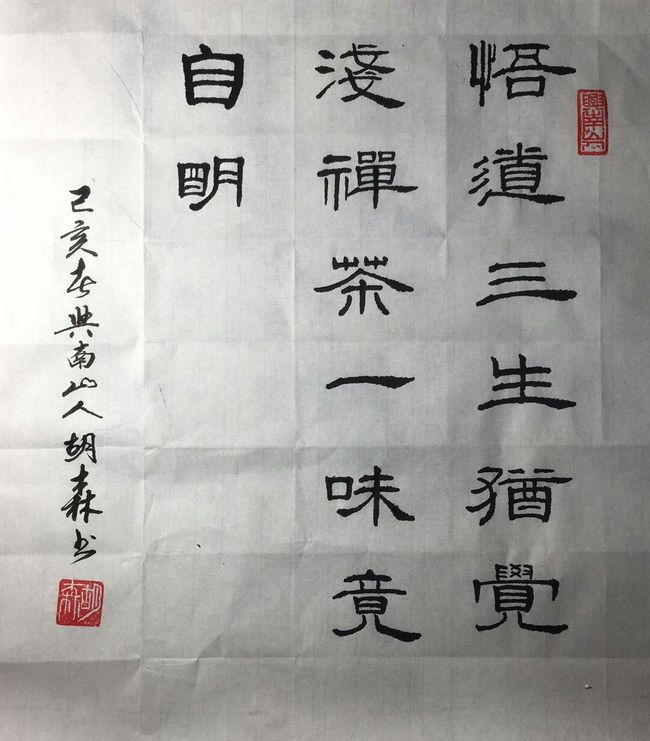 悟道三生猶覺
淺禪茶一味竟
自明
己亥春典南山人胡森书
胡森